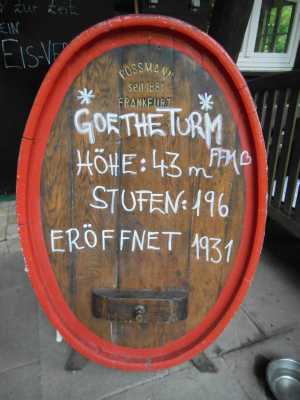 zur Zeit
EIS-VER
POSSMANN
seit 1881
FRANKFURT
* *
GOETHETURM
FFM
HÖHE: 43 m
STUFEN: 196
ERÖFFNET 1931